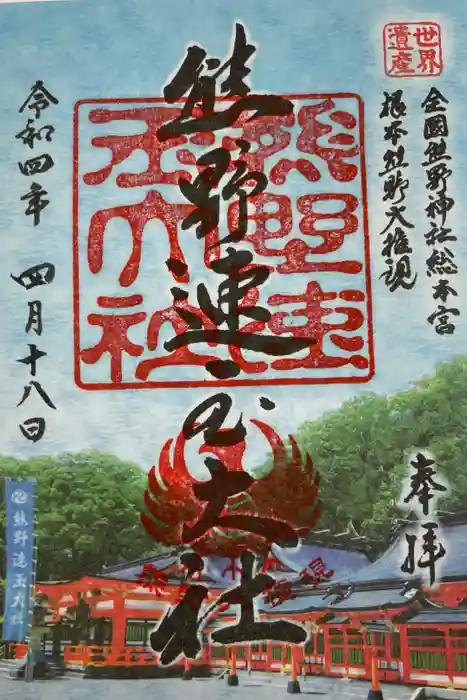 世界
遺産
全国熊野神社総本宮
根本熊野大権現
奉拝
熊野速玉大社
熊野速玉大社
令和四年 四月十八日
熊野速玉大社